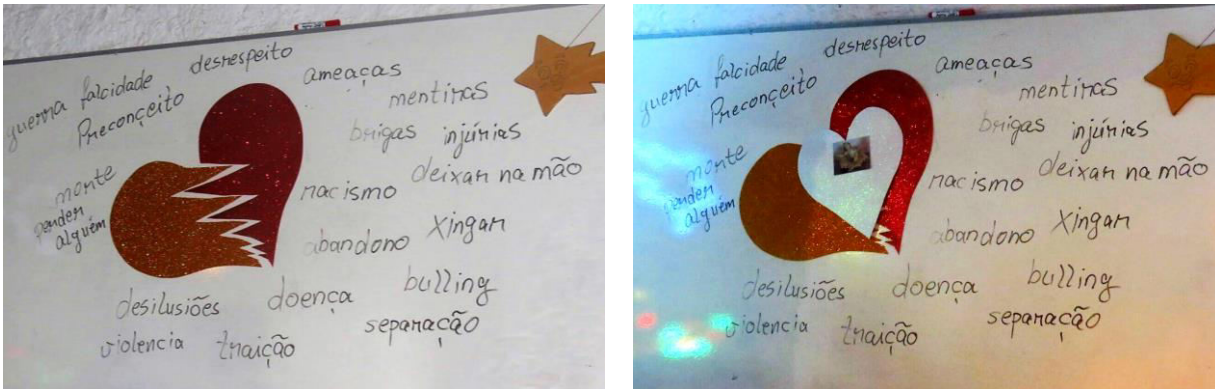 guerra falcidade desrespeito ameaças
Preconçeito mentiras
brigas injúrias
morte racismo deixar na mão
perder
alguém abandono xingar
desilusiões doença bulling
violencia traição separação
guerra falcidade desrespeito ameaças
Preconçeito mentiras
brigas injúrias
morte racismo deixar na mão
perder
alguém abandono xingar
desilusiões doença bulling
violencia traição separação